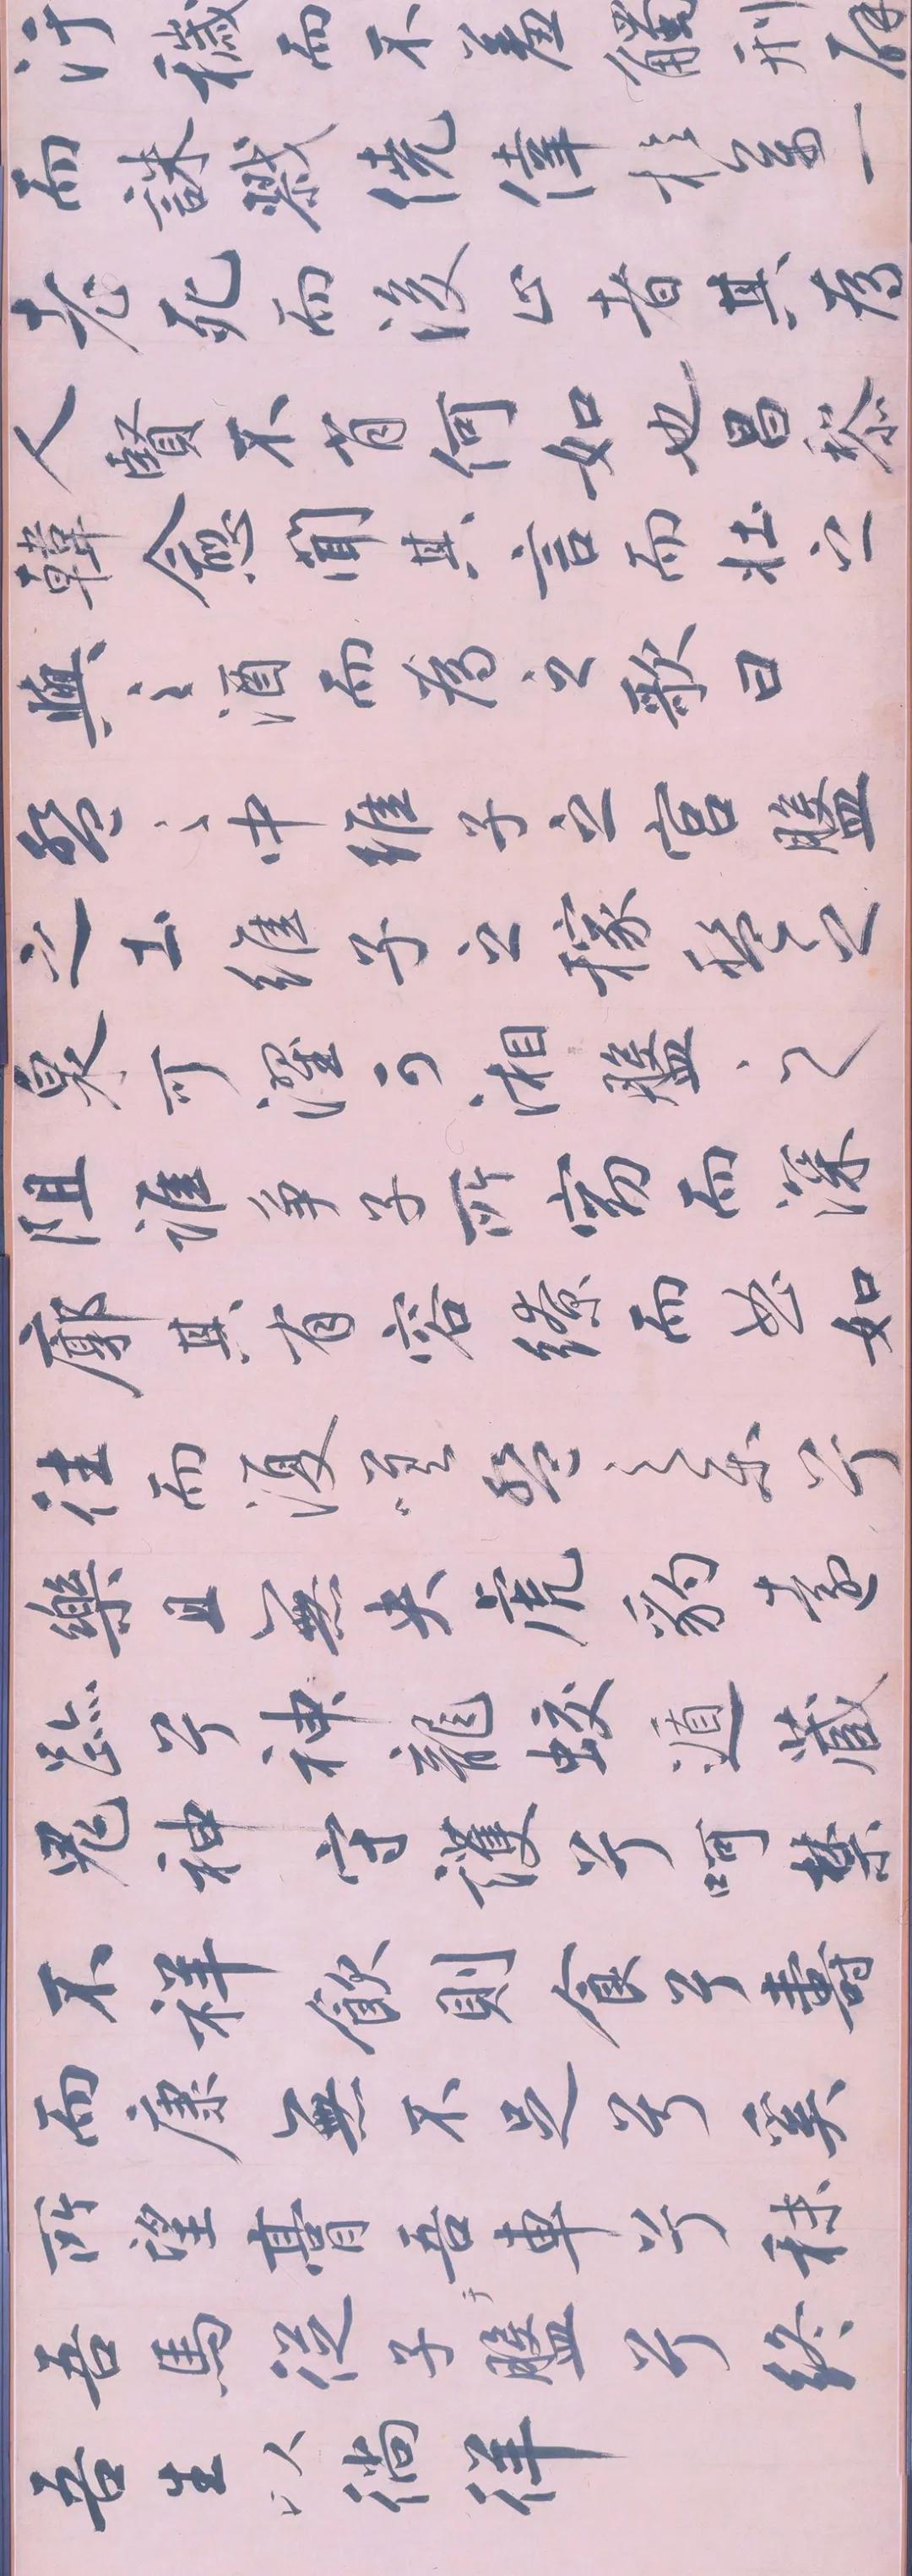 汙穢而不羞觸刑辟
而誅戮僥倖於萬一
老死而後止者其為
人賢不肖何如也昌黎
韓愈聞其言而壯之
與之酒而為之歌曰
盤之中維子之宮盤
之土維子之稼盤之
泉可濯可湘盤之
阻誰爭子所窈而深
廓其有容繚而曲如
往而復嗟盤之樂兮
樂且無央虎豹遠
跡兮神龍蛟遁藏
鬼神守護兮呵禁
不祥飲則食兮壽
而康無不足兮奚
所望膏吾車兮秣
吾馬從子盤兮終
吾生以徜徉